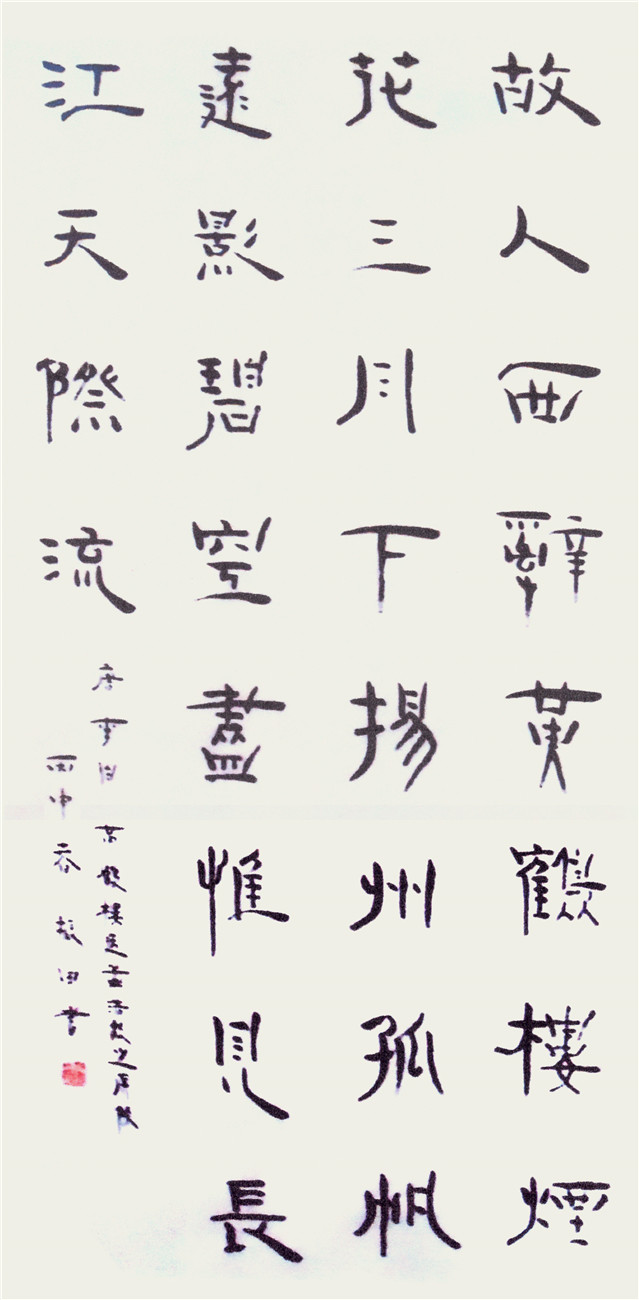 故人西辭黄鶴樓煙
花三月下揚州孤帆
遠影碧空盡惟見長
江天際流
唐李白黄鶴樓送孟浩然之廣陵
丙申春振田書